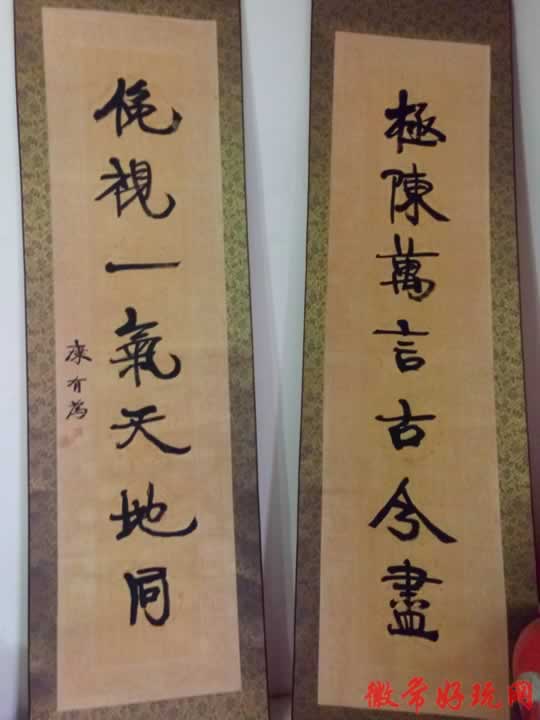 極陳萬言古今盡
俛視一氣天地同
康有為
微常好玩网